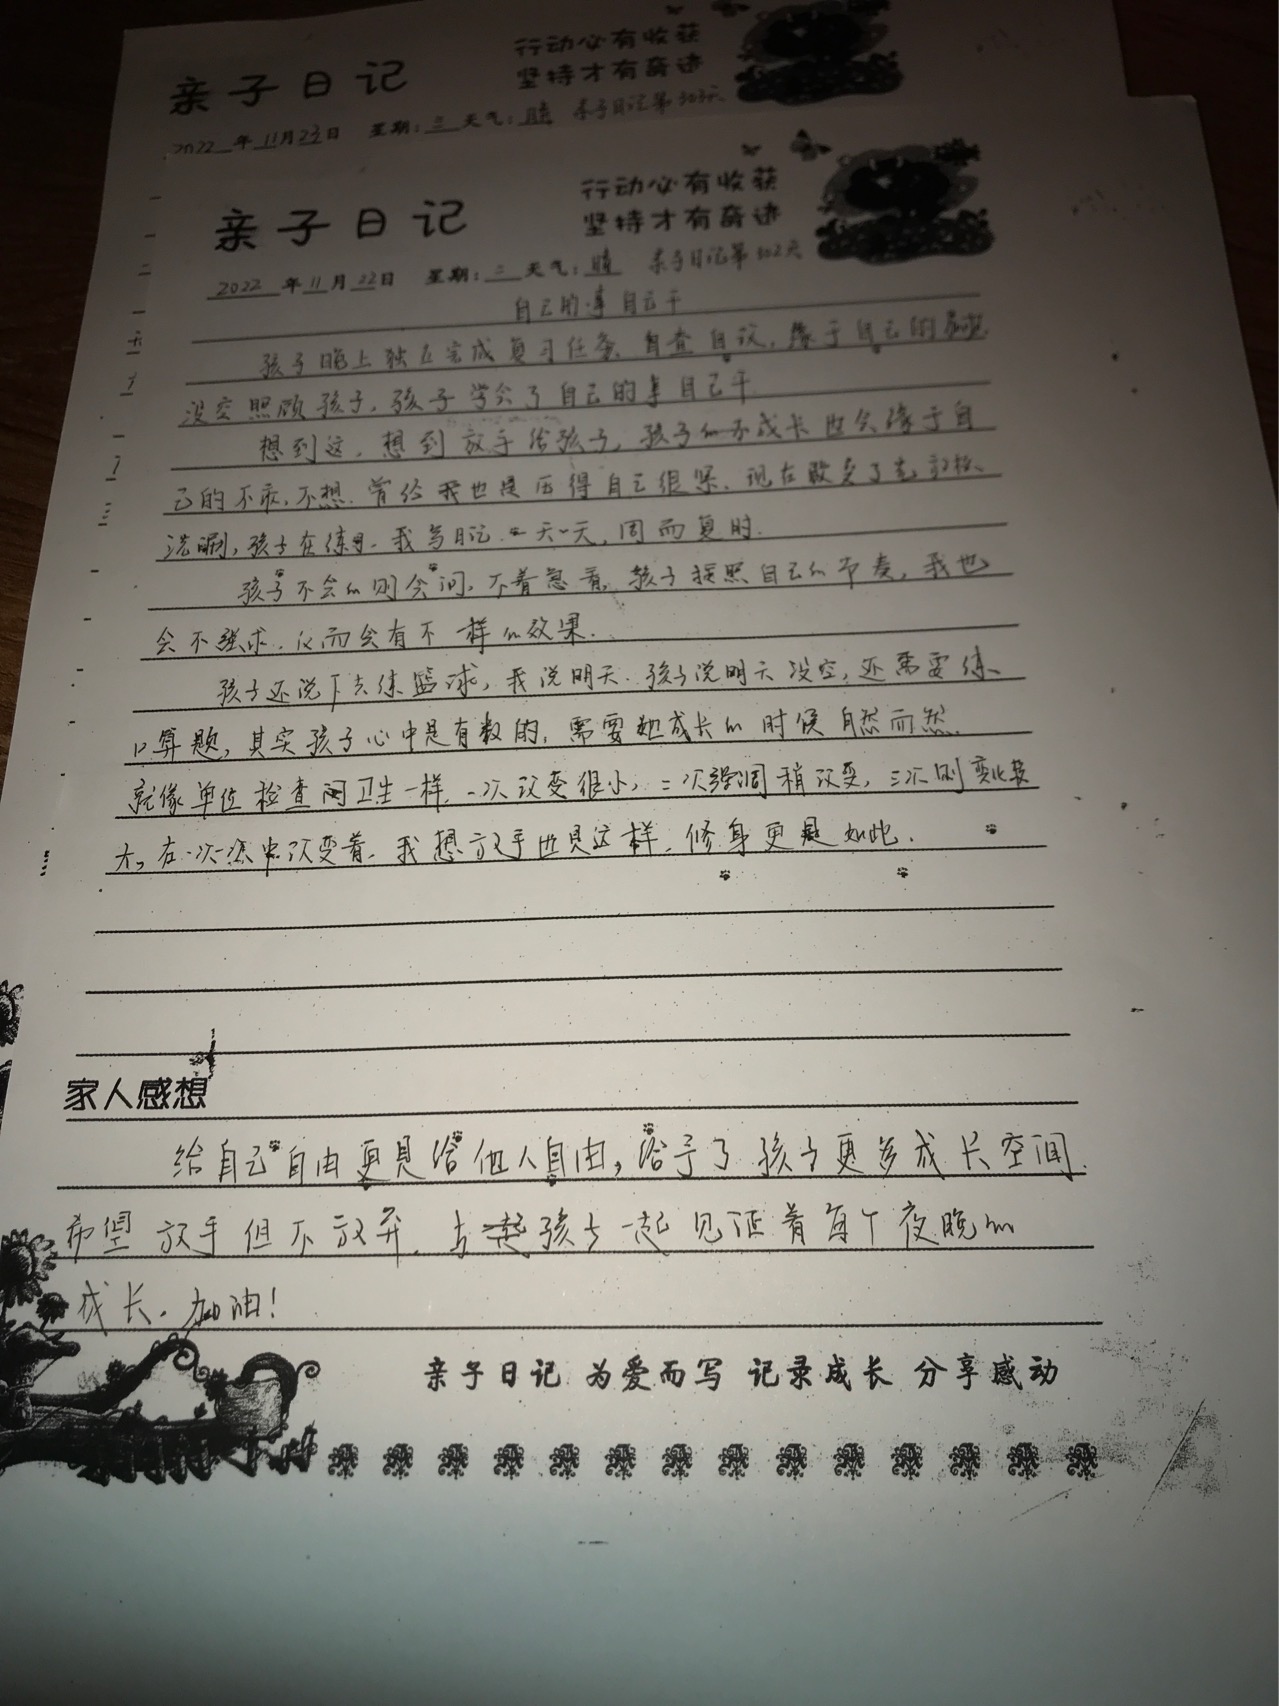 亲子日记
行动必有收获
坚持才有奇迹
2022年11月23日 星期:三 天气:晴 亲子日记第303天
亲子日记
行动必有收获
坚持才有奇迹
2022年11月22日 星期:二 天气:晴 亲子日记第302天
自己的事自己干
孩子晚上独立完成复习任务,自查自议,缘于自己的
没空照顾孩子,孩子学会了自己的事自己干.
想到这,想到放手给孩子,孩子的不成长也会缘于自
己的不求,不想.曾给我也是压得自己很累.现在
洗唰,孩子在练习.我写日记.一天一天,周而复时.
孩子不会的则会问,不着急着,孩子按照自己的节奏,我也
会不强求.反而会有不一样的效果.
孩子还说下去练篮球,我说明天.孩子说明天没空,还需要练
口算题,其实孩子心中是有数的,需要她成长的时候自然而然.
就像单位检查间卫生一样,一次改变很小,二次强调稍改变,三次则变化较
大,在一次次中改变着,我想放手也是这样,修身更是如此.
家人感想
给自己自由更是给他人自由,给予了孩子更多成长空间.
希望放手但不放弃.与孩子一起见证着每个夜晚的
成长.加油!
亲子日记 为爱而写 记录成长 分享感动